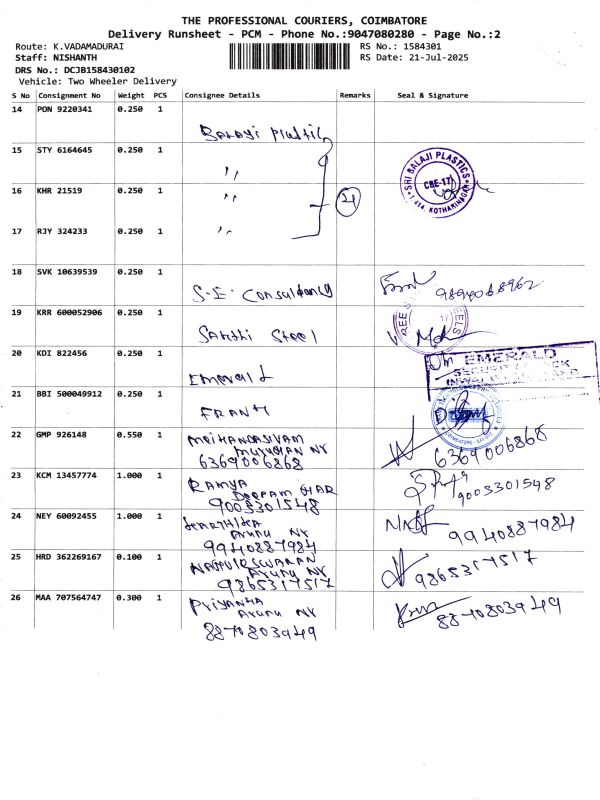 THE PROFESSIONAL COURIERS, COIMBATORE
Delivery Runsheet - PCM - Phone No.:9047080280 - Page No.:2
Route: K.VADAMADURAI
RS No.: 1584301
Staff: NISHANTH
RS Date: 21-Jul-2025
DRS No.: DCJB158430102
Vehicle: Two Wheeler Delivery
S No Consignment No Weight PCS Consignee Details Remarks Seal & Signature
14 PON 9220341 0.250 1
Balaji Plastic
15 STY 6164645 0.250 1
,,
SRI BALAJI PLASTICS
CBE-17
KOTHARINAGAR
16 KHR 21519 0.250 1
,,
17 RJY 324233 0.250 1
,,
18 SVK 10639539 0.250 1
S.E. Consultancy
9894068962
19 KRR 600052906 0.250 1
Sakthi Steel
20 KDI 822456 0.250 1
Emerald
EMERALD
21 BBI 500049912 0.250 1
22 GMP 926148 0.550 1
6369006868
6369006868
23 KCM 13457774 1.000 1
RAMYA
9003301548
9003301548
24 NEY 60092455 1.000 1
9940887984
9940887984
25 HRD 362269167 0.100 1
9865317517
9865317517
26 MAA 707564747 0.300 1
Priyanka
8870803949
8870803949